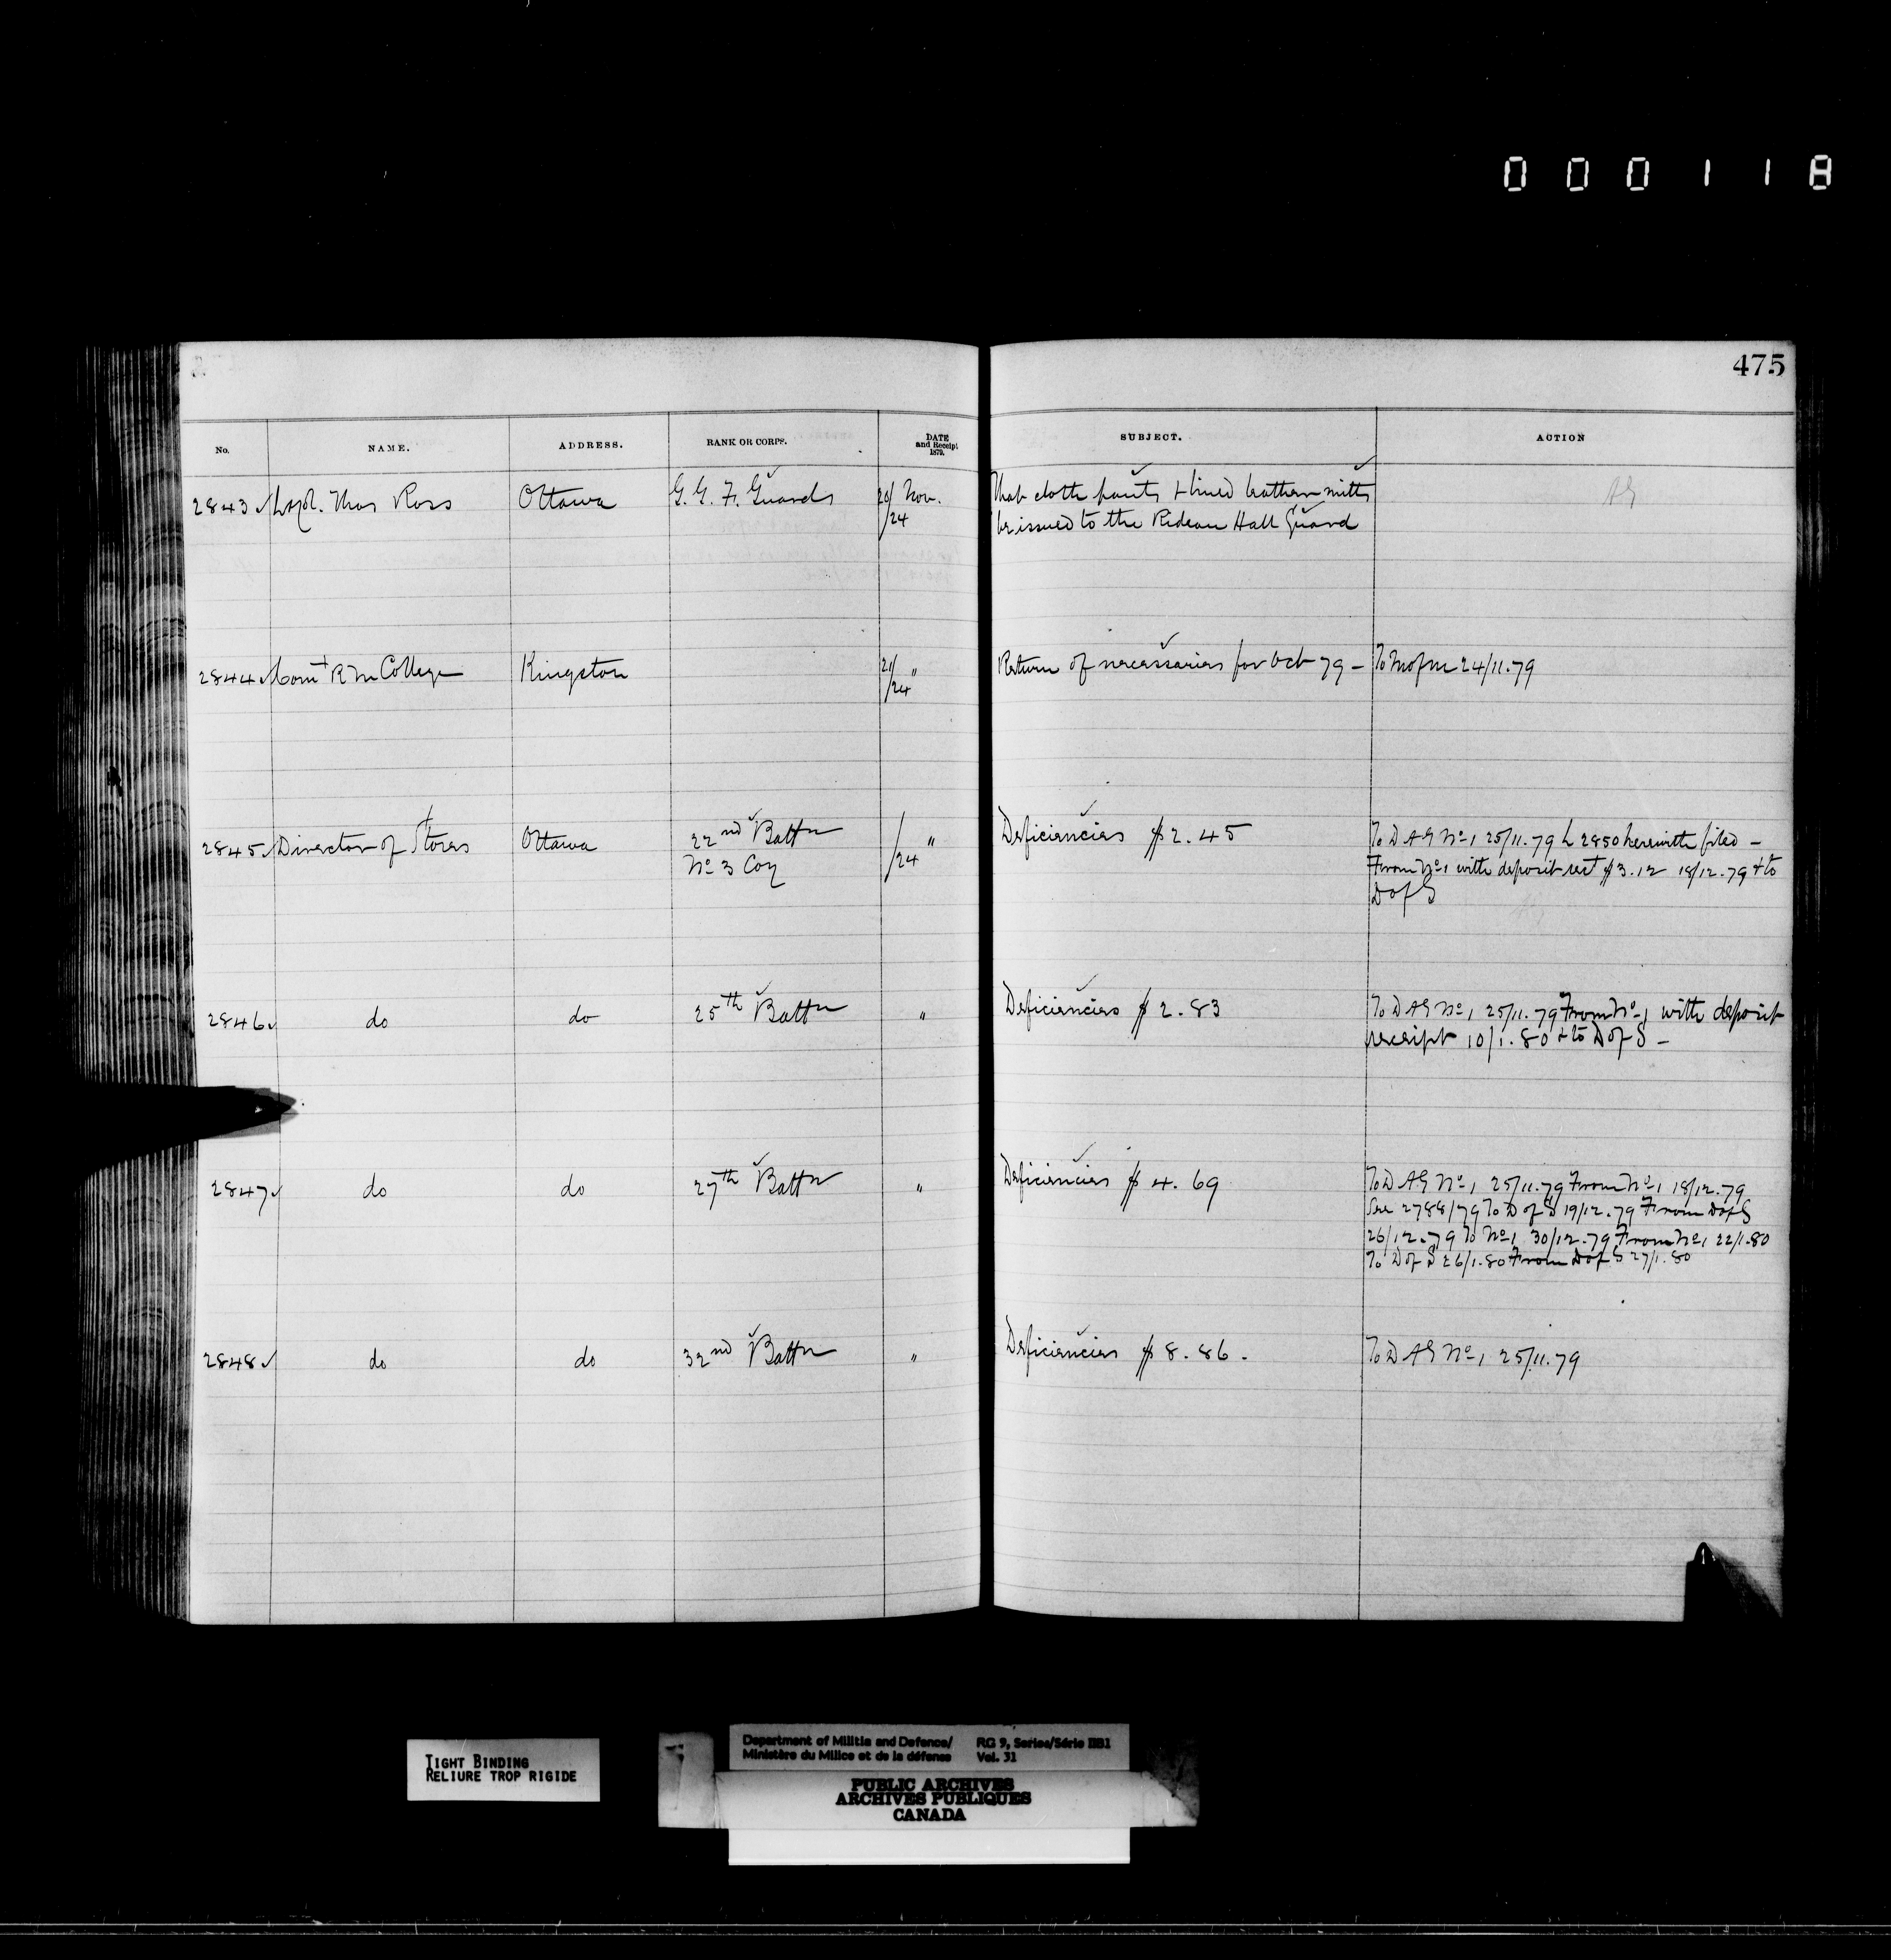 000118
475
No. NAME. ADDRESS. RANK OR CORPS. DATE and Receipt 1879. SUBJECT. ACTION
2843 Thos Ross Ottawa G. G. F. Guards 20/24 Nov. That cloth pants & lined leathern mitts AG
be issued to the Rideau Hall Guard
2844 Comt R M College Kingston 21/24 " Return of necessaries for Oct 79 – To M of M 24/11.79
2845 Director of Stores Ottawa 22nd Battn /24 " Deficiencies $2.45 To D A G No 1 25/11.79 L 2850 herewith filed –
No 3 Coy From No 1 with deposit rect $3.12 18/12.79 & to
D of S
2846 do do 25th Battn " Deficiencies $2.83 To D A G No 1 25/11.79 From No 1 with deposit
receipt 10/1.80 & to D of S –
2847 do do 27th Battn " Deficiencies $4.69 To D A G No 1 25/11.79 From No 1 18/12.79
See 2788/79 To D of S 19/12.79 From D of S
26/12.79 To No 1 30/12.79 From No 1 22/1.80
To D of S 26/1.80 From D of S 27/1.80
2848 do do 32nd Battn " Deficiencies $8.86. To D A G No 1 25/11.79
TIGHT BINDING
RELIURE TROP RIGIDE
Department of Militia and Defence/ RG 9, Series/Série IIB1
Ministère du Milice et de la défense Vol. 31
PUBLIC ARCHIVES
ARCHIVES PUBLIQUES
CANADA